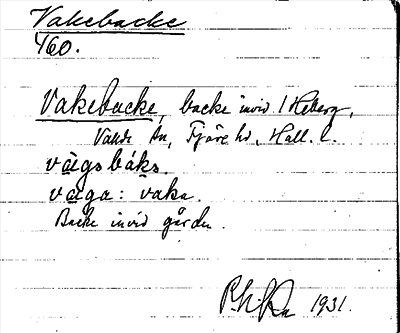 Vakebacke
460.
Vakebacke, backe invid 1 Heberg,
Valda sn, Fjäre hd, Hall. l.
vàgsbàks.
vàga: vaka.
Backe invid gården.
1931.